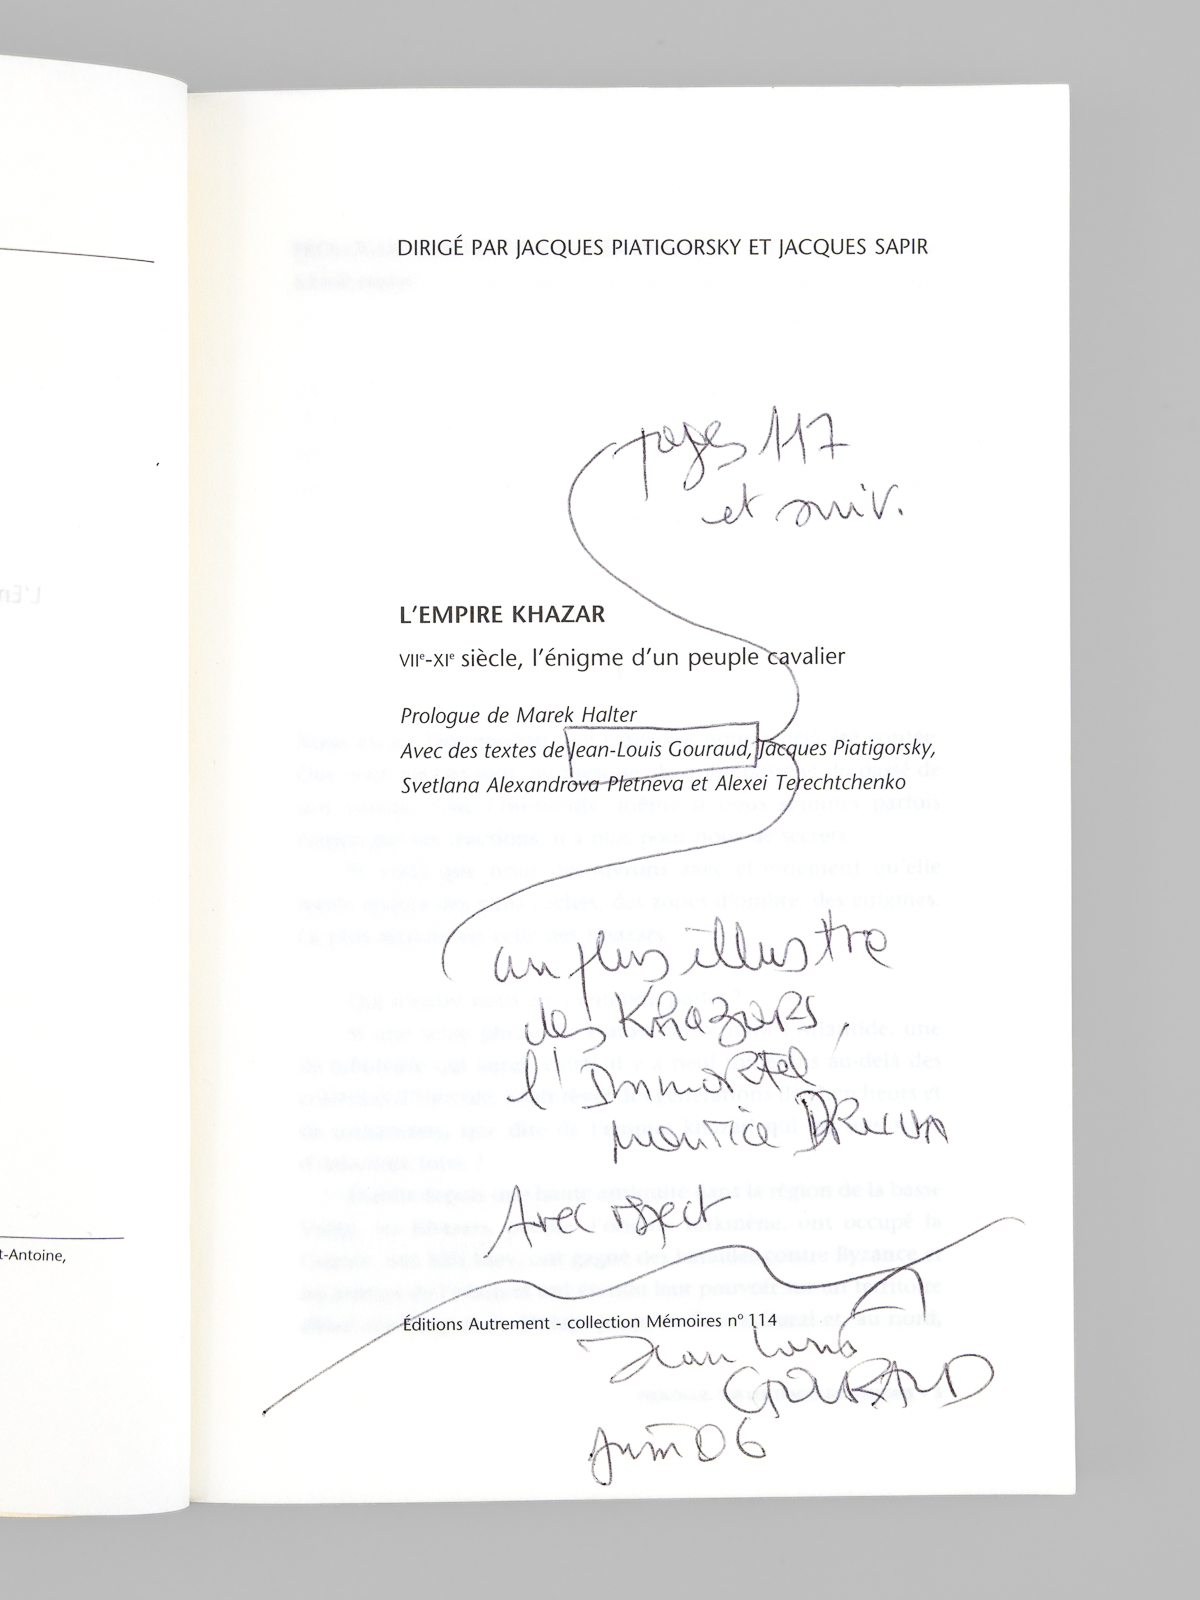 DIRIGÉ PAR JACQUES PIATIGORSKY ET JACQUES SAPIR
pages 117
et suiv.
L'EMPIRE KHAZAR
VIIe-XIe siècle, l'énigme d'un peuple cavalier
Prologue de Marek Halter
Avec des textes de Jean-Louis Gouraud, Jacques Piatigorsky,
Svetlana Alexandrova Pletneva et Alexei Terechtchenko
au plus illustre
des Khazars
l'Immortel
Maurice DRUON
Avec respect
Éditions Autrement - collection Mémoires nº 114
Jean Louis
GOURAUD
Juin 06
t-Antoine,